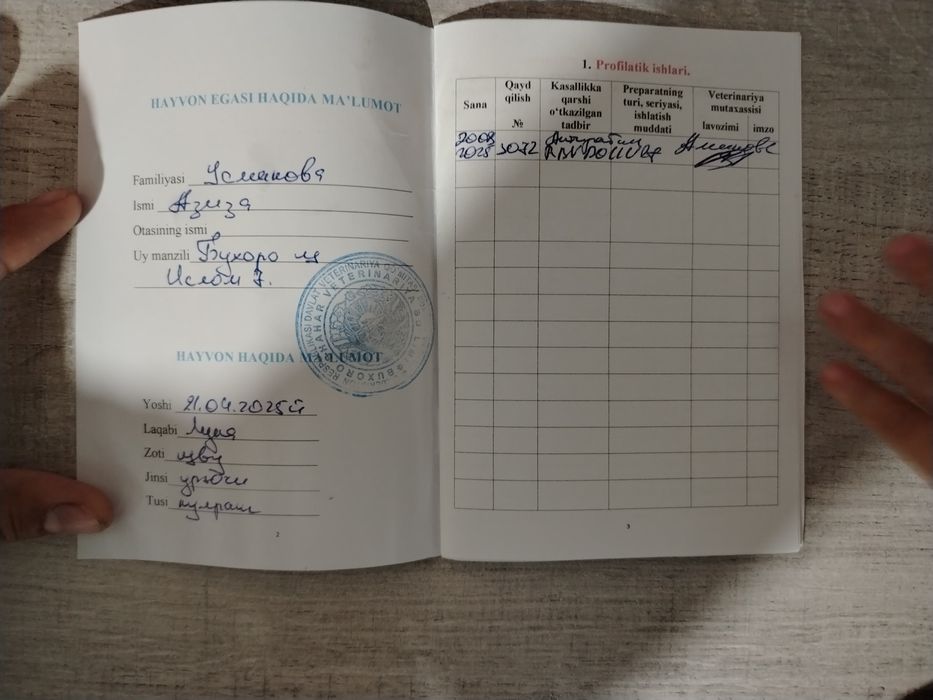 HAYVON EGASI HAQIDA MA'LUMOT
Familiyasi Усманова
Ismi Азиза
Otasining ismi
Uy manzili Бухоро ш
Ислом Г.
HAYVON HAQIDA MA'LUMOT
Yoshi 21.04.2025й
Laqabi Луна
Zoti
Jinsi урғочи
Tusi кулранг
2
1. Profilatik ishlari.
Sana
Qayd qilish №
Kasallikka qarshi o'tkazilgan tadbir
Preparatning turi, seriyasi, ishlatish muddati
Veterinariya mutaxassisi
lavozimi imzo
2008
2025 3072
3